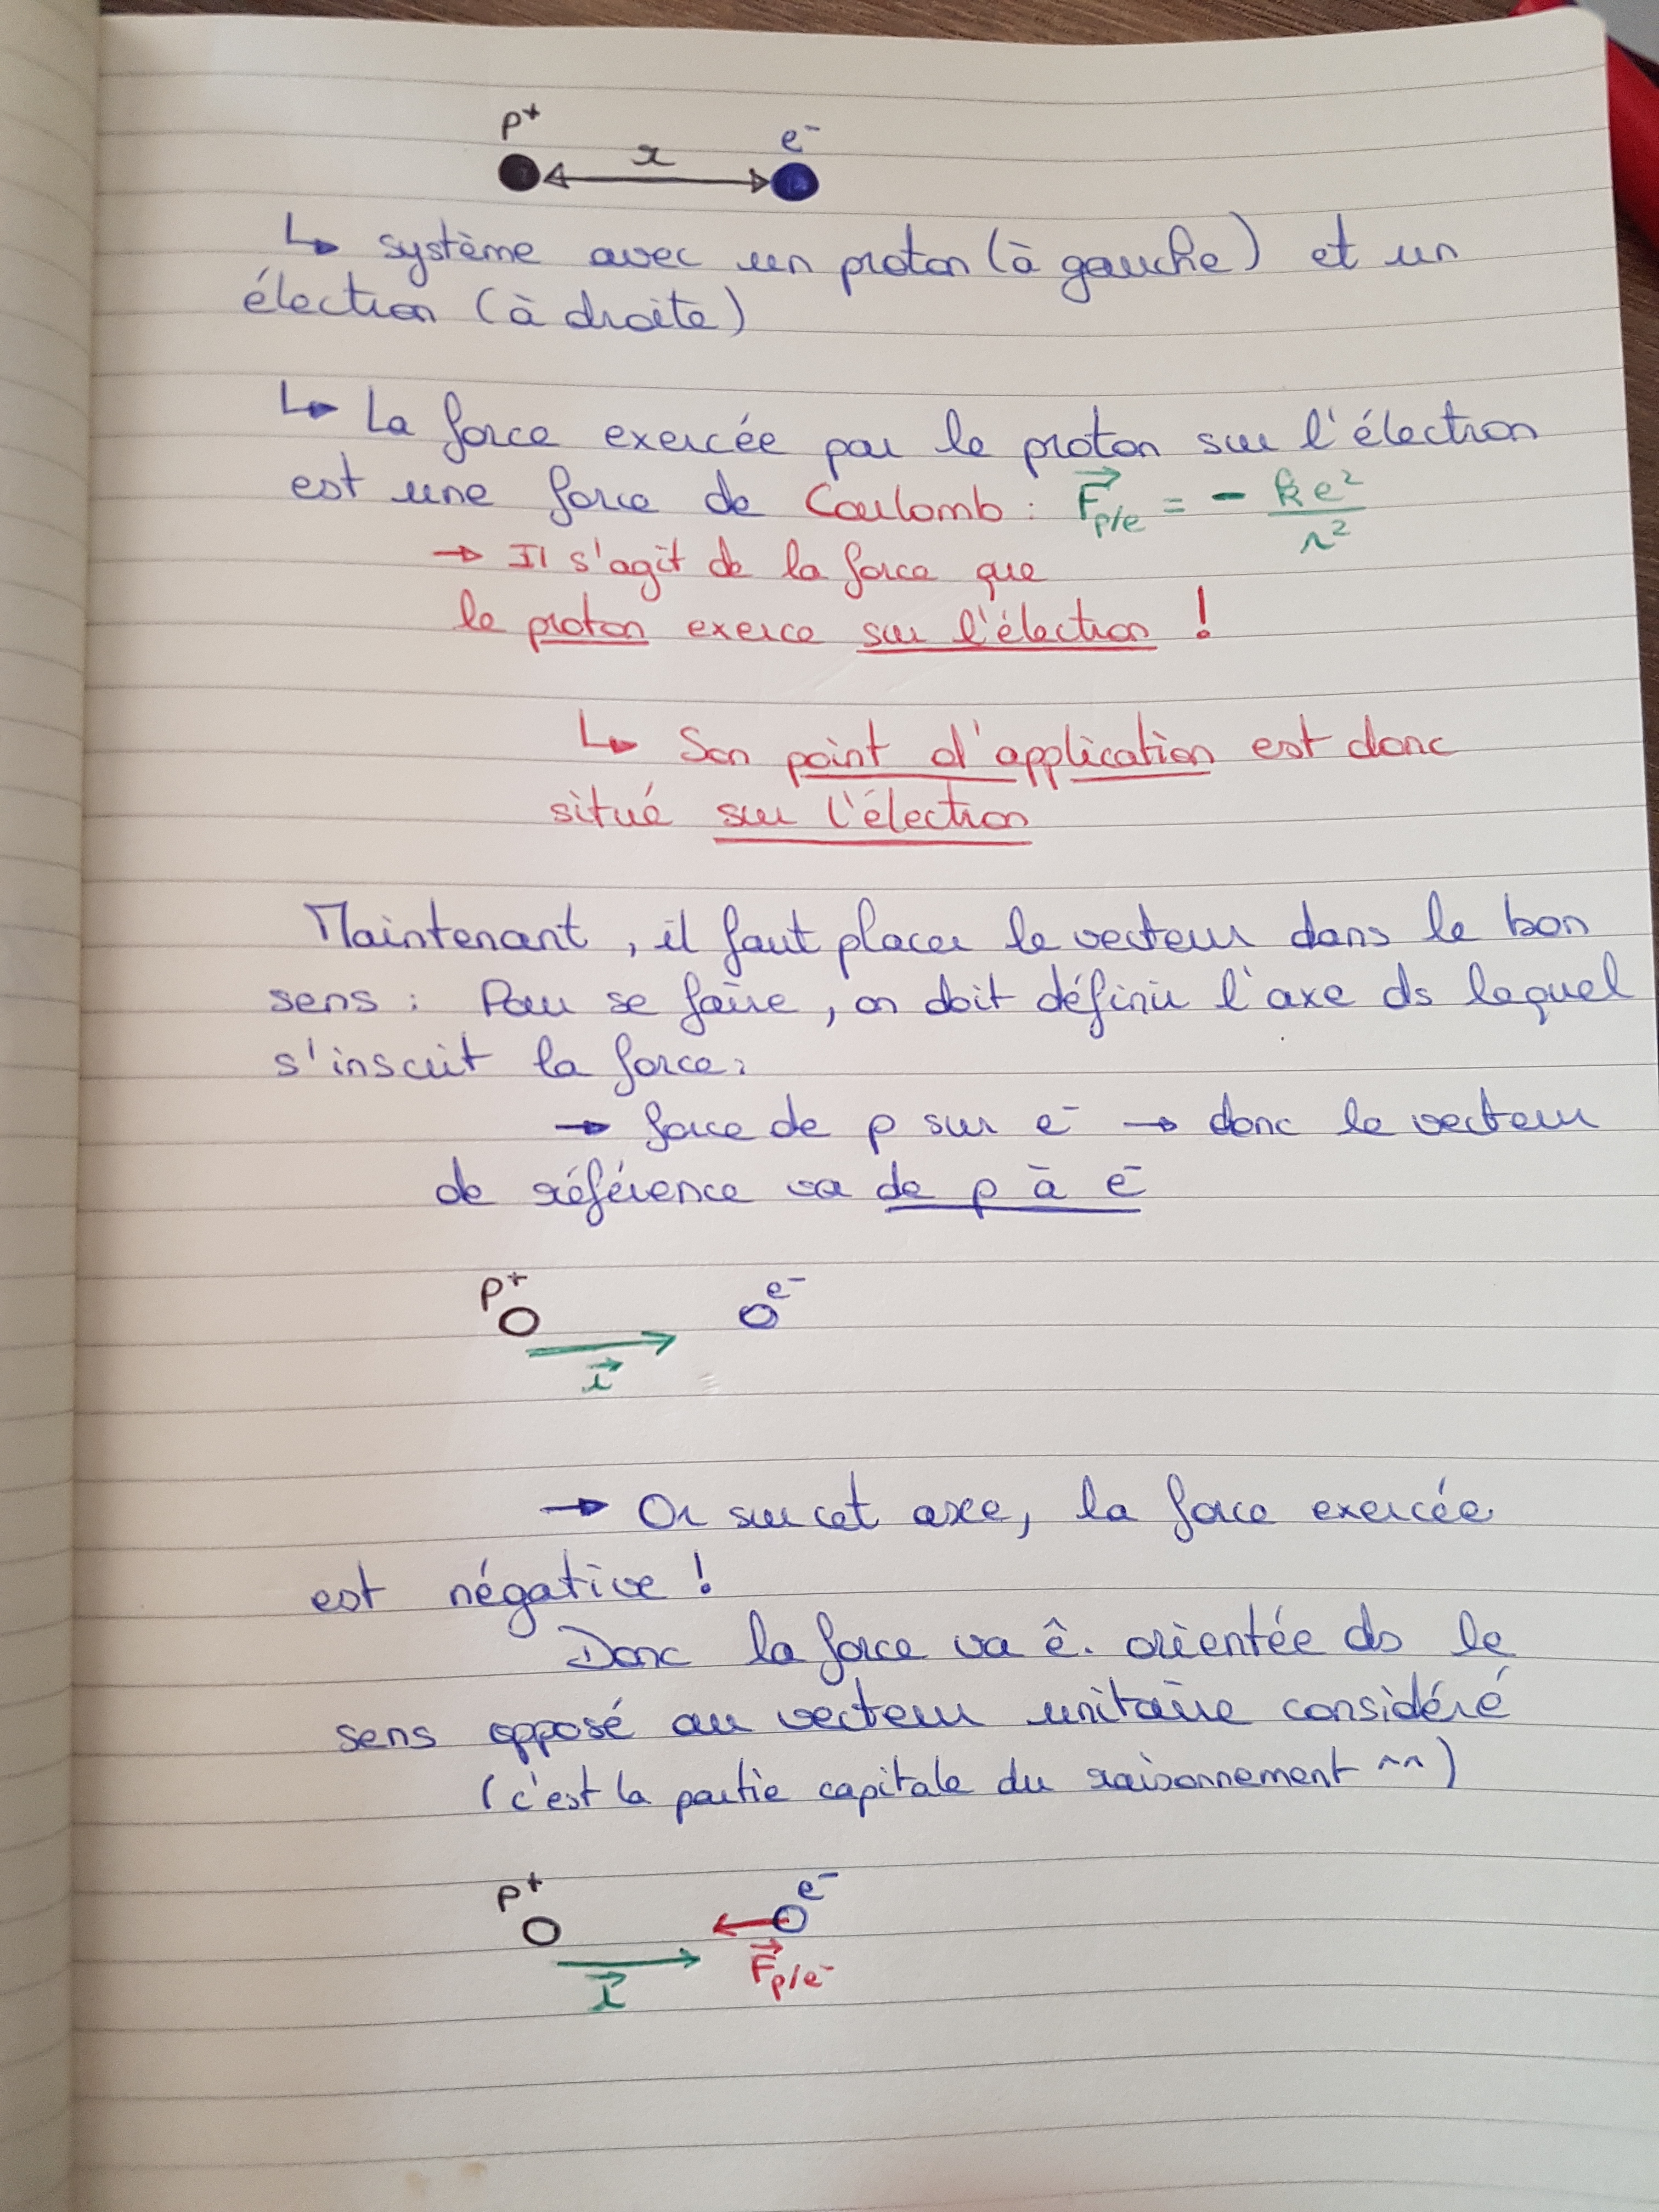 p⁺ e⁻
x
↳ système avec un proton (à gauche) et un
électron (à droite)
↳ La force exercée par le proton sur l'électron
est une force de Coulomb : F⃗p/e = - ke²/r²
→ Il s'agit de la force que
le proton exerce sur l'électron !
↳ Son point d'application est donc
situé sur l'électron
Maintenant, il faut placer le vecteur dans le bon
sens : Pour se faire, on doit définir l'axe ds lequel
s'inscrit la force :
→ force de p sur e⁻ → donc le vecteur
de référence va de p à e⁻
p⁺ e⁻
i⃗
→ Or sur cet axe, la force exercée
est négative !
Donc la force va ê. orientée ds le
sens opposé au vecteur unitaire considéré
(c'est la partie capitale du raisonnement ^^)
p⁺ e⁻
i⃗ F⃗p/e⁻